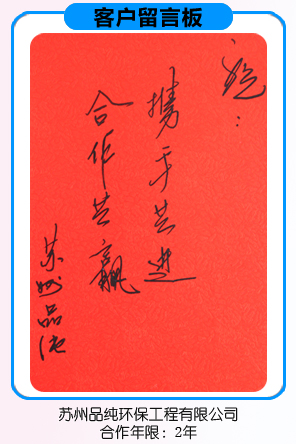 客户留言板
祝：
携手共进
合作共赢
苏州品纯
苏州品纯环保工程有限公司
合作年限：2年